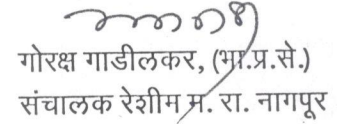 गोरक्ष गाडीलकर, (भा.प्र.से.)
संचालक रेशीम म. रा. नागपूर